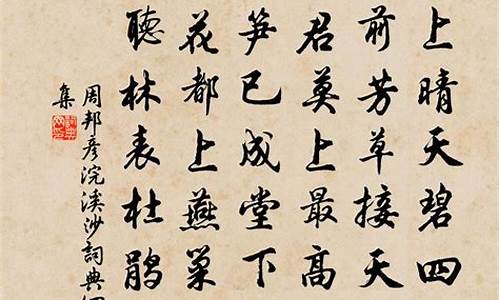 上晴天碧四
前芳草接天
君莫上最高
笋已成堂下
花都上燕巢
聽林表杜鹃
周邦彦浣溪沙詞典
集